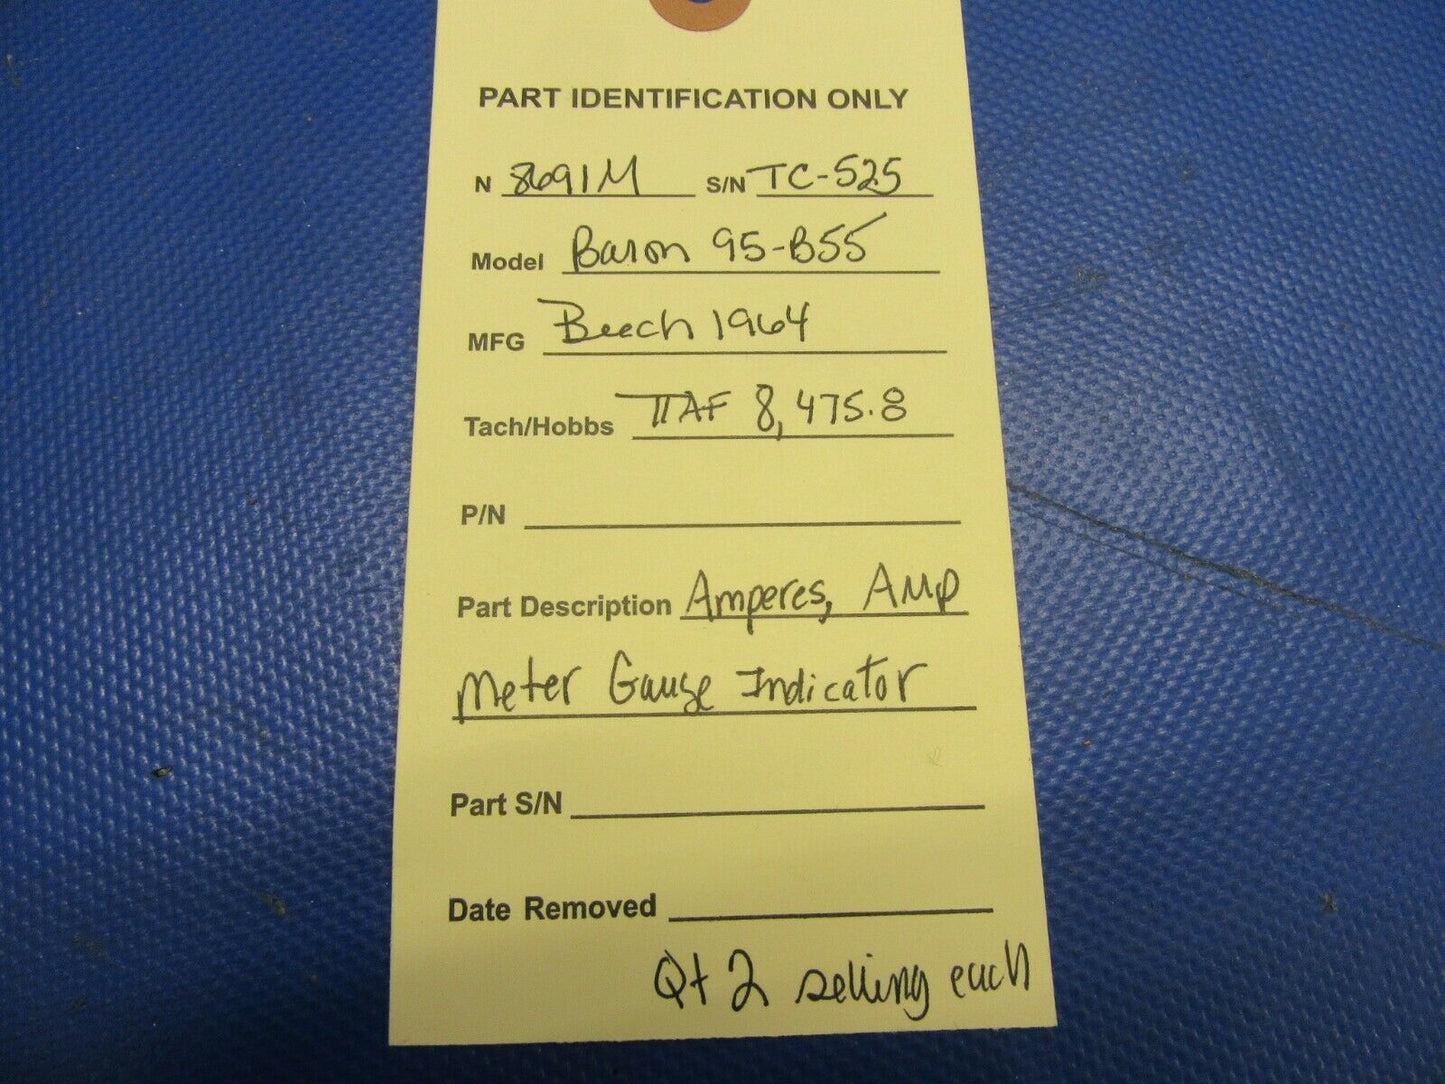 PART IDENTIFICATION ONLY
N 8691M S/N TC-525
Model Baron 95-B55
MFG Beech 1964
Tach/Hobbs TTAF 8,475.8
P/N
Part Description Amperes, Amp
Meter Gauge Indicator
Part S/N
Date Removed
Qt 2 selling each